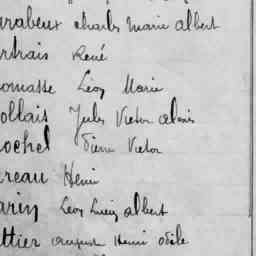 arabeux Charles Marie Albert
rthais René
omasse Léon Marie
ollais Jules Victor Alexis
ochel Pierre Victor
reau Henri
arin Léon Lucien Albert
ttier August Henri Odile